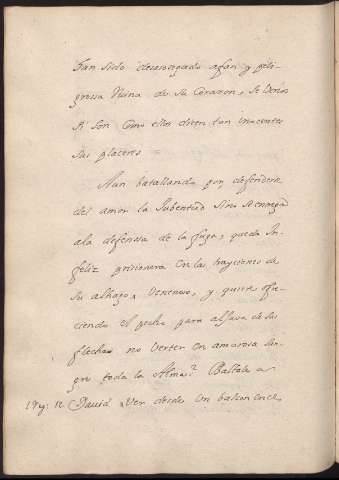 han sido desasosegado afan y peli-
grossa Ruina de su Corazon, se vera
si son como ellos dicen tan innocentes
sus placeres =
Aun batallando por defenderse
del amor la Jubentud sino se entrega
ala defensa de la fuga, queda in-
feliz prisionera en las trayciones de
su alhago Venenoso, y quien ofre-
ciendo el pecho para aljava de sus
flechas no vertera en amorosa san-
gre toda la Alma? Bastale a
1 Rg: 11. David Ver desde un balcon en el